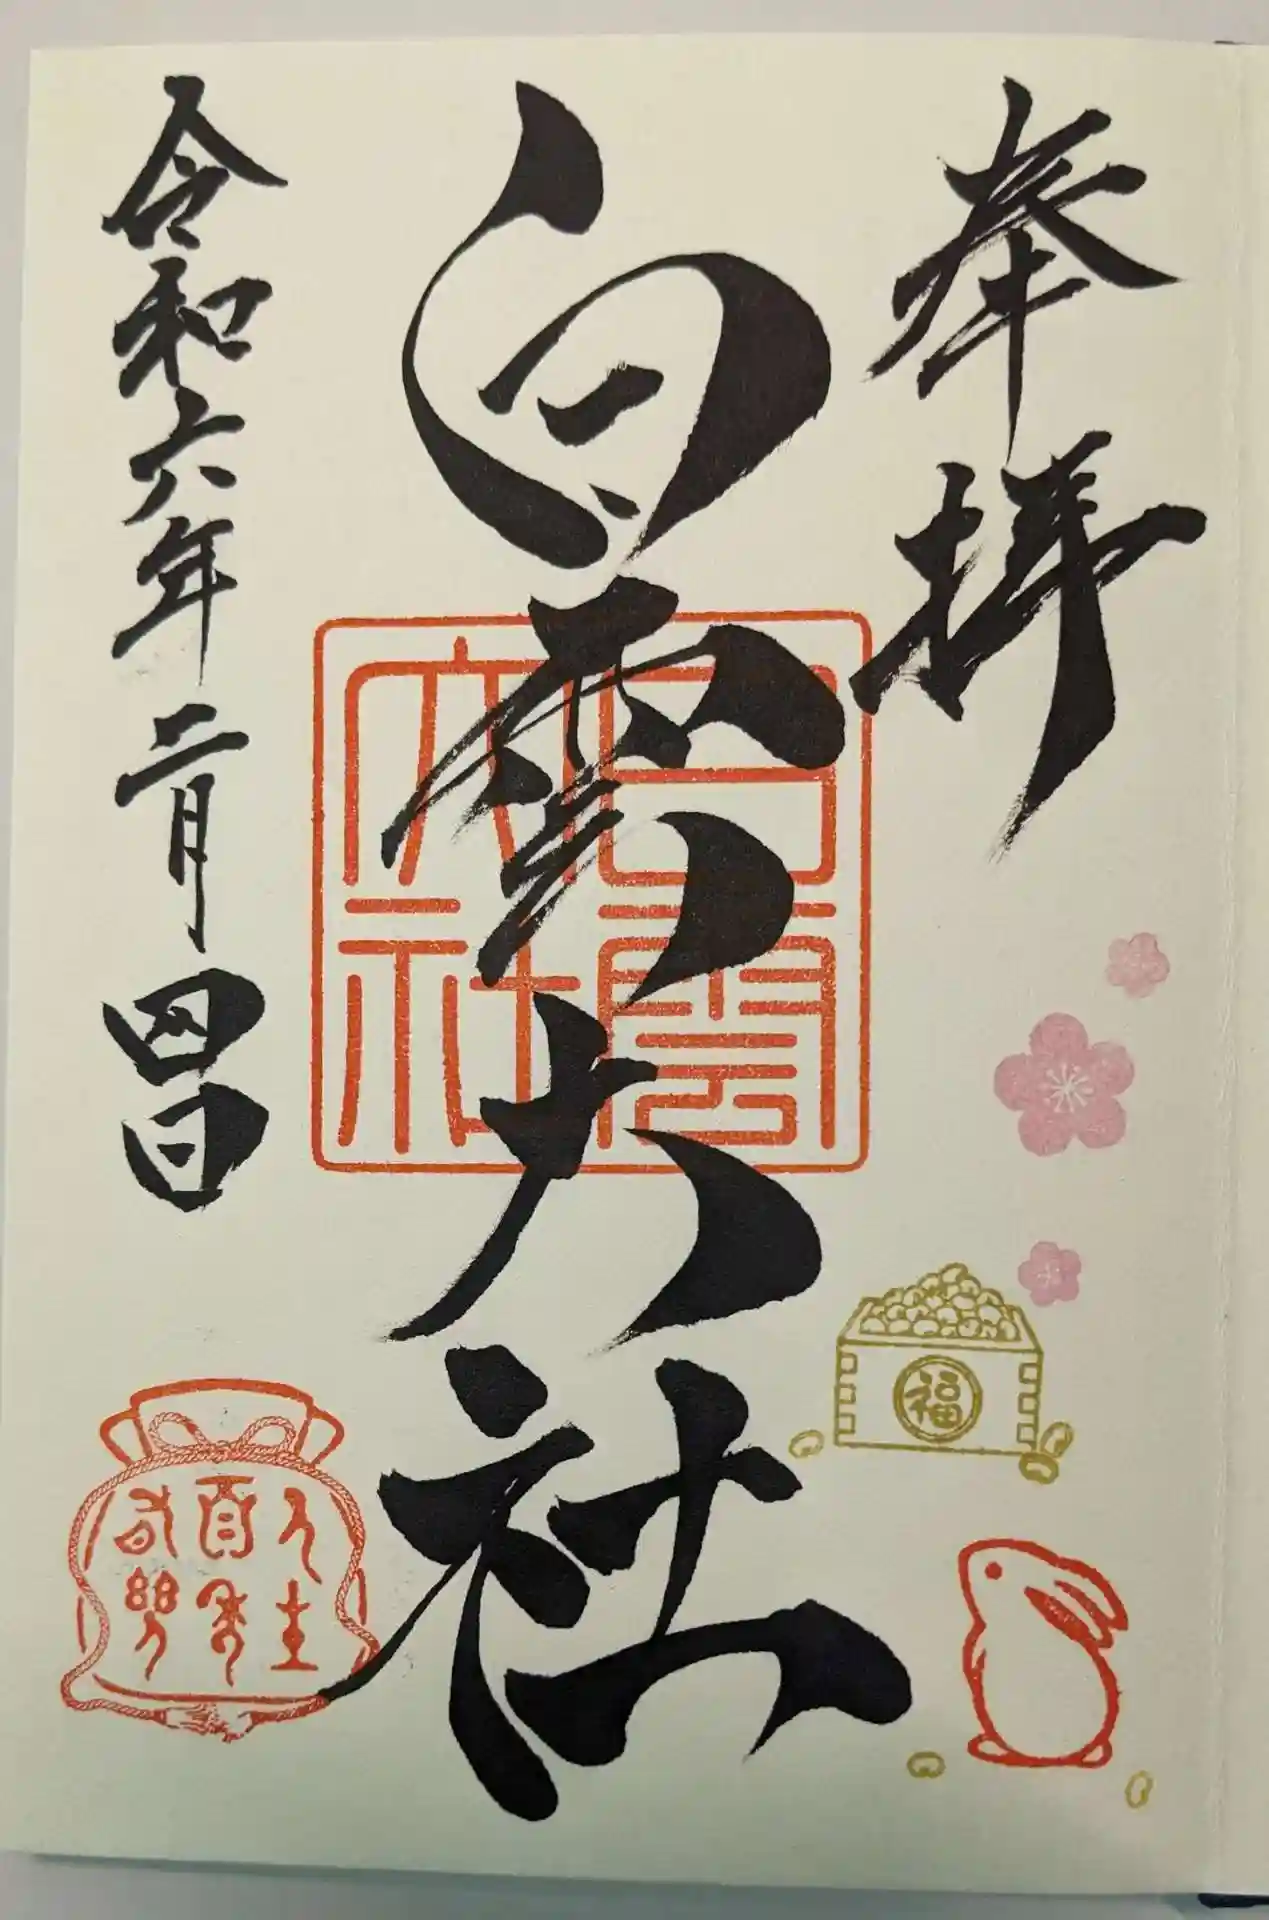 奉拝
白雲大社
白雲
大社
令和六年二月四日
福